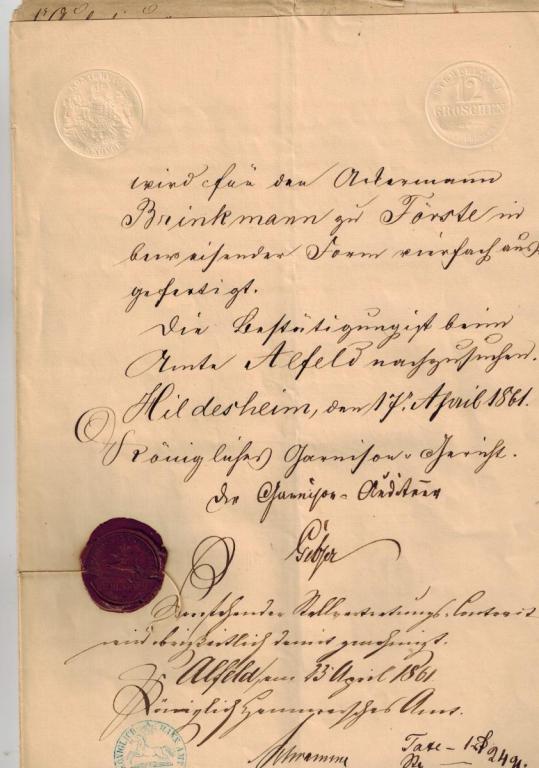 12
GROSCHEN
wird für den Ackermann
Brinkmann zu Förste in
beweisender Form vierfach aus
gefertigt.
Die Bestätigung ist beim
Amte Alfeld nachzusuchen.
Hildesheim, den 17t. April 1861.
Königliches Garnison-Gericht.
Der Garnison-Auditeur
Vorstehender Stellvertretungs-Contract
wird obrigkeitlich damit genehmigt.
Alfeld, am 23 April 1861
Königlich Hannoversches Amt.
Taxe - 12
24 gr.